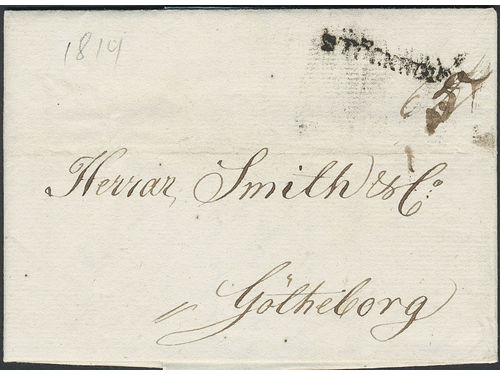 1819
STOCKHOLM
Herrar, Smith & Co:
Götheborg